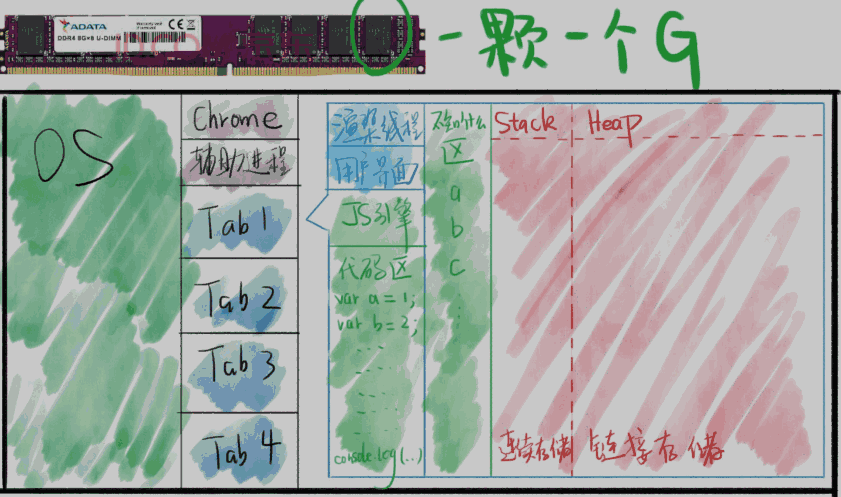 ADATA
DDR4 8G×8 U-DIMM
一颗一个G
OS
Chrome
辅助进程
Tab 1
Tab 2
Tab 3
Tab 4
渲染线程
用户界面
JS引擎
代码区
var a = 1;
var b = 2;
......
console.log(..)
不知叫什么
区
a
b
c
Stack
连续存储
Heap
链接存储